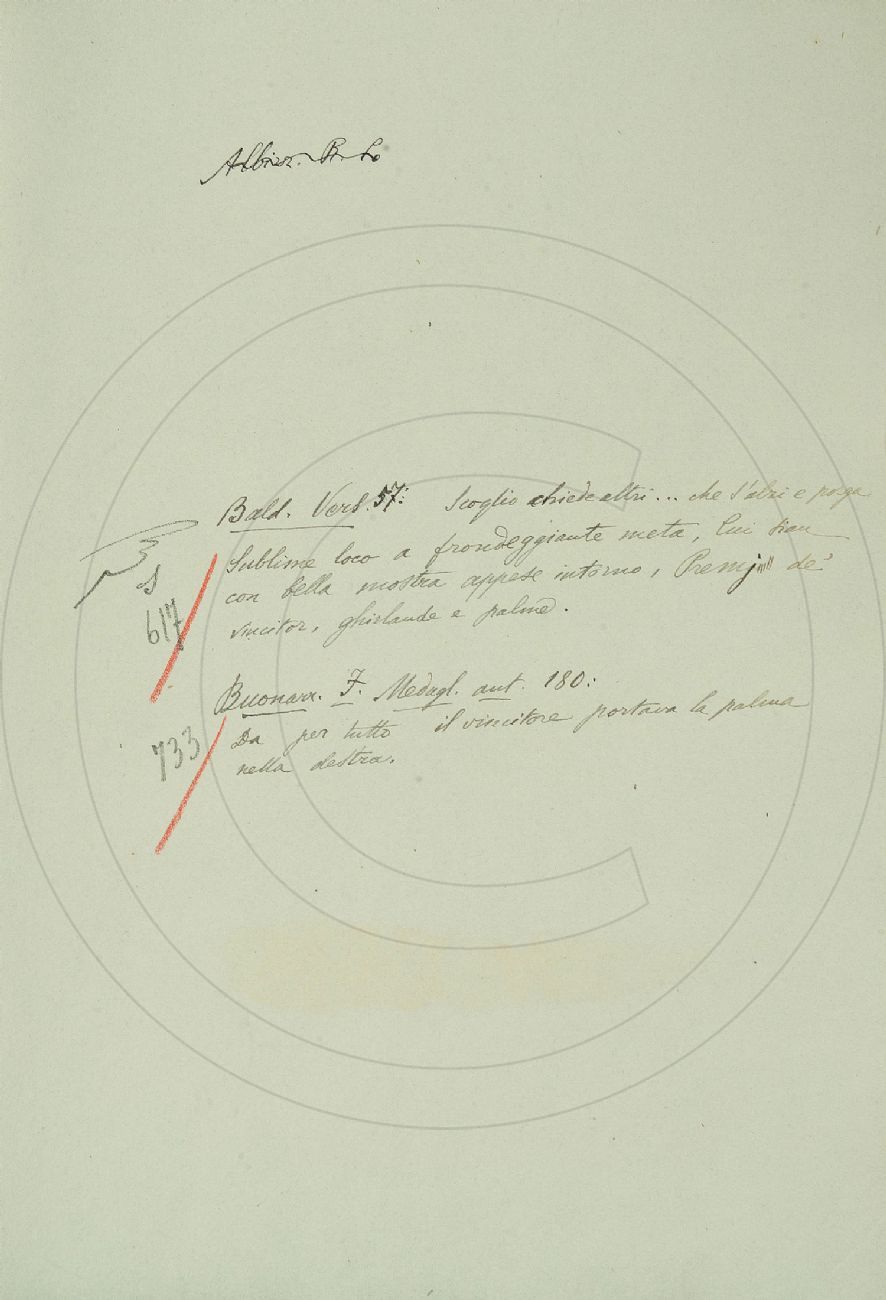 Bald. Vers. 57: Scoglio chiede altri... che s'alzi e porga
Sublime loco a frondeggiante meta, Cui sian
con bella mostra appese intorno, Premj de'
vincitor, ghirlande e palme.
617
Buonarr. F. Medagl. ant. 180:
Da per tutto il vincitore portava la palma
nella destra.
733